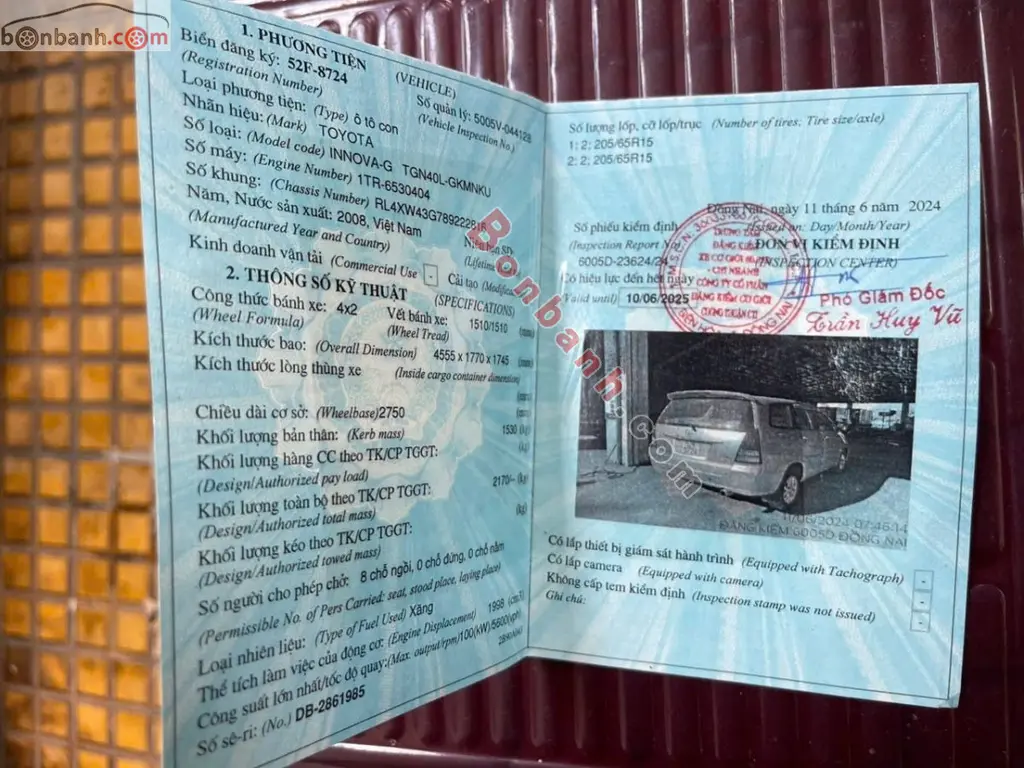 bonbanh.com
1. PHƯƠNG TIỆN (VEHICLE)
Biển đăng ký: 52F-8724
(Registration Number)
Số quản lý: 5005V-044128
(Vehicle Inspection No.)
Loại phương tiện: (Type) ô tô con
Nhãn hiệu: (Mark) TOYOTA
Số loại: (Model code) INNOVA-G TGN40L-GKMNKU
Số máy: (Engine Number) 1TR-6530404
Số khung: (Chassis Number) RL4XW43G78922281
Năm, Nước sản xuất: 2008, Việt Nam
(Manufactured Year and Country)
Kinh doanh vận tải (Commercial Use) - Cải tạo
2. THÔNG SỐ KỸ THUẬT (SPECIFICATIONS)
Công thức bánh xe: 4x2 Vết bánh xe: 1510/1510 (mm)
(Wheel Formula) (Wheel Tread)
Kích thước bao: (Overall Dimension) 4555 x 1770 x 1745 (mm)
Kích thước lòng thùng xe (Inside cargo container dimension)
(mm)
Chiều dài cơ sở: (Wheelbase) 2750 (mm)
Khối lượng bản thân: (Kerb mass) 1530 (kg)
Khối lượng hàng CC theo TK/CP TGGT: (kg)
(Design/Authorized pay load)
Khối lượng toàn bộ theo TK/CP TGGT: 2170/-- (kg)
(Design/Authorized total mass)
Khối lượng kéo theo TK/CP TGGT: (kg)
(Design/Authorized towed mass)
Số người cho phép chở: 8 chỗ ngồi, 0 chỗ đứng, 0 chỗ nằm
(Permissible No. of Pers Carried: seat, stood place, laying place)
Loại nhiên liệu: (Type of Fuel Used) Xăng
Thể tích làm việc của động cơ: (Engine Displacement) 1998 (cm3)
Công suất lớn nhất/tốc độ quay: (Max. output/rpm) 100(kW)/5600(vph)
Số sê-ri: (No.) DB-2861985
Số lượng lốp, cỡ lốp/trục (Number of tires; Tire size/axle)
1: 2; 205/65R15
2: 2; 205/65R15
Đồng Nai, ngày 11 tháng 6 năm 2024
(Issued on: Day/Month/Year)
Số phiếu kiểm định
(Inspection Report No)
6005D-23624/24
ĐƠN VỊ KIỂM ĐỊNH
(INSPECTION CENTER)
Có hiệu lực đến hết ngày
(Valid until) 10/06/2025
Phó Giám Đốc
Trần Huy Vũ
11/06/2024 07:46:14
ĐĂNG KIỂM 6005D ĐỒNG NAI
Có lắp thiết bị giám sát hành trình (Equipped with Tachograph) -
Có lắp camera (Equipped with camera) -
Không cấp tem kiểm định (Inspection stamp was not issued) -
Ghi chú:
Bonbanh.com